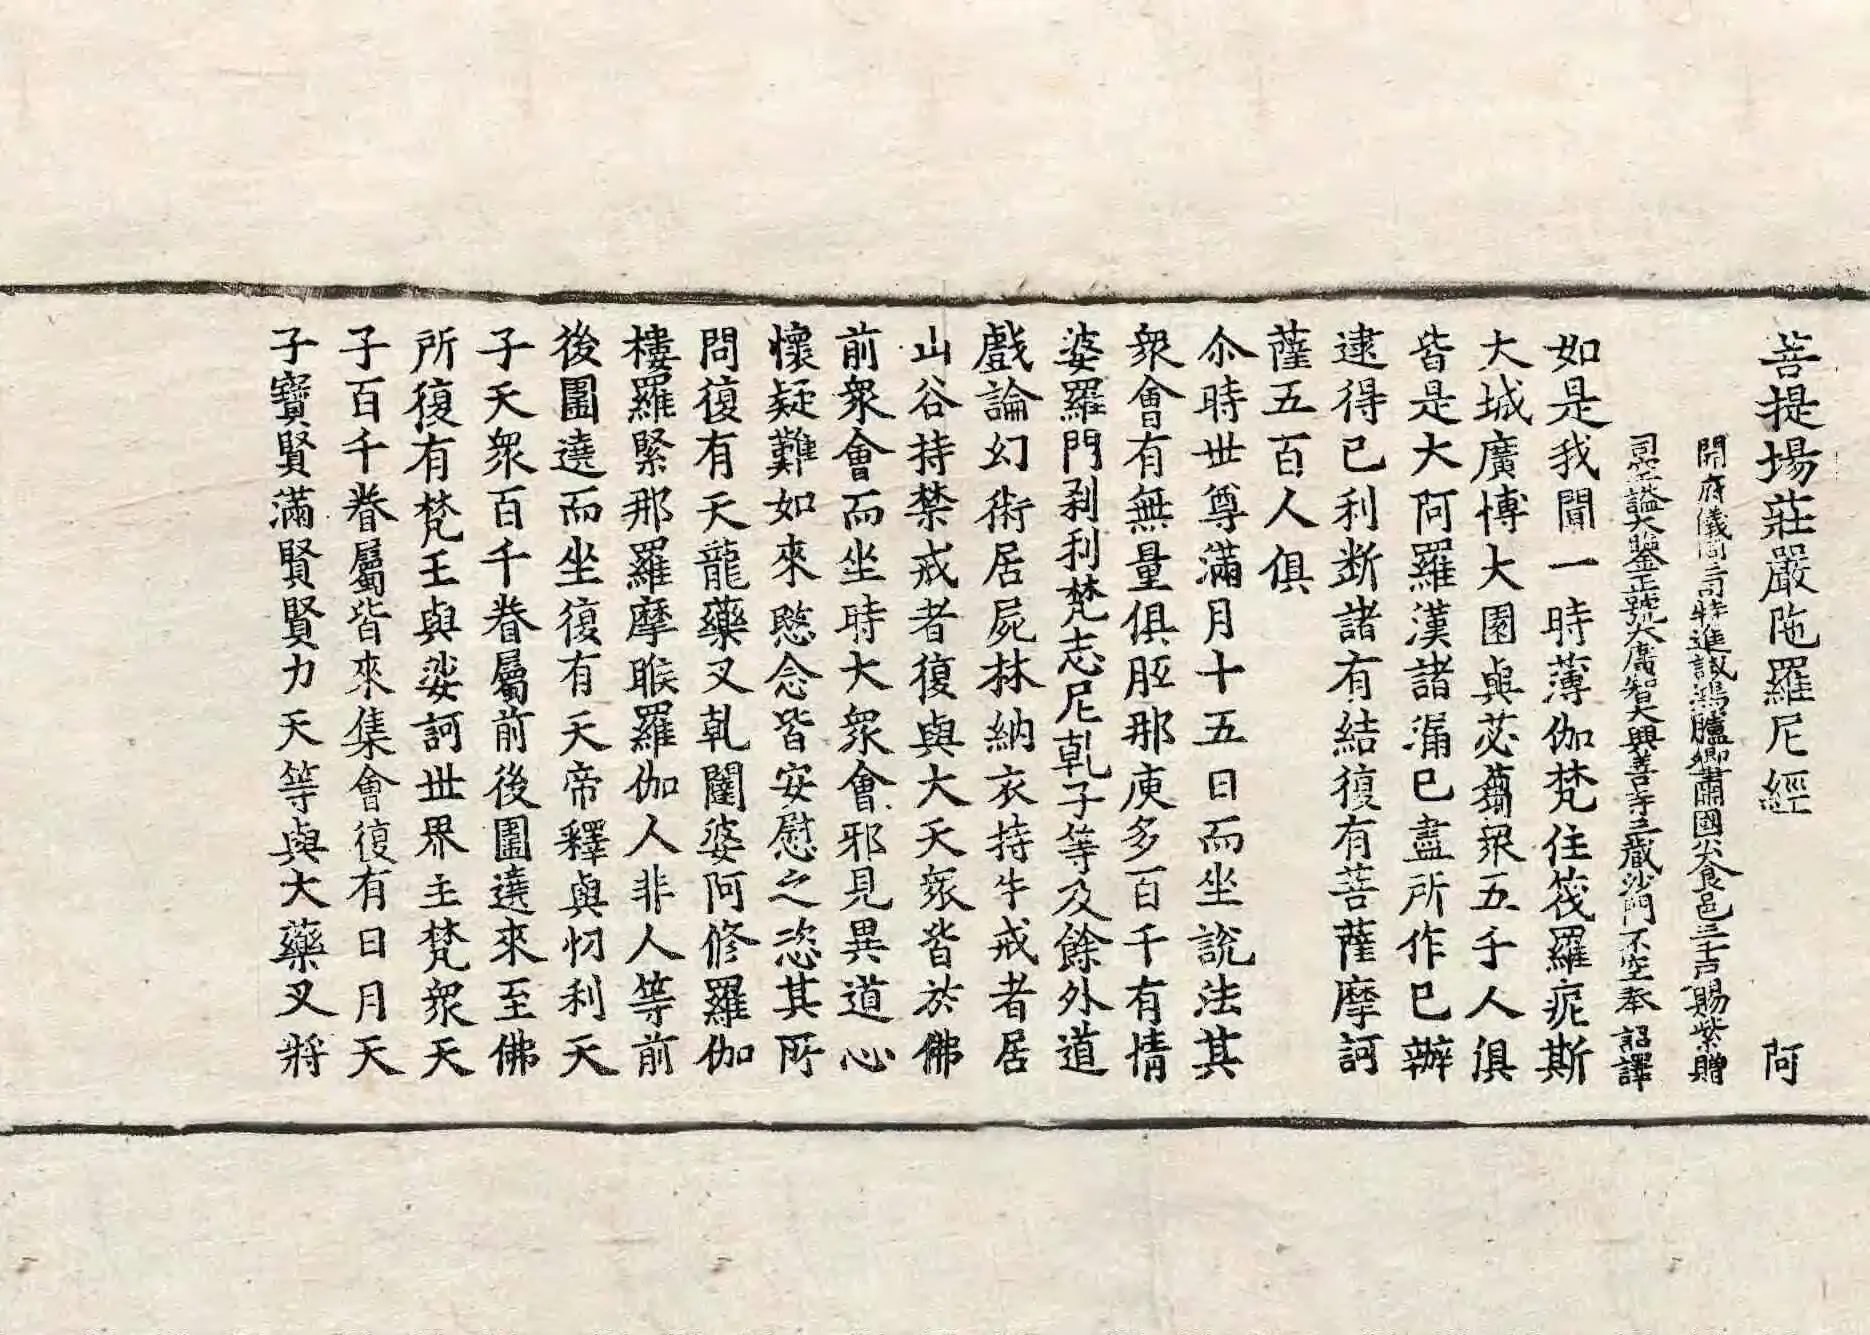 菩提場莊嚴陁羅尼經 阿
開府儀同三司特進試鴻臚卿肅國公食邑三千戶賜紫贈
司空謚大鑒正號大廣智大興善寺三藏沙門不空奉 詔譯
如是我聞一時薄伽梵住筏羅痆斯
大城廣博大園與苾蒭眾五千人俱
皆是大阿羅漢諸漏已盡所作已辦
逮得已利断諸有結復有菩薩摩訶
薩五百人俱
尒時世尊滿月十五日而坐說法其
眾會有無量俱胝那庾多百千有情
婆羅門剎利梵志尼乹子等及餘外道
戲論幻術居屍林納衣持牛戒者居
山谷持禁戒者復與大天眾皆於佛
前眾會而坐時大眾會邪見異道心
懷疑難如來愍念皆安慰之恣其所
問復有天龍藥叉乹闥婆阿修羅伽
樓羅緊那羅摩睺羅伽人非人等前
後圍遶而坐復有天帝釋與忉利天
子天眾百千眷屬前後圍遶來至佛
所復有梵王與娑訶世界主梵眾天
子百千眷屬皆來集會復有日月天
子寶賢滿賢賢力天等與大藥叉將